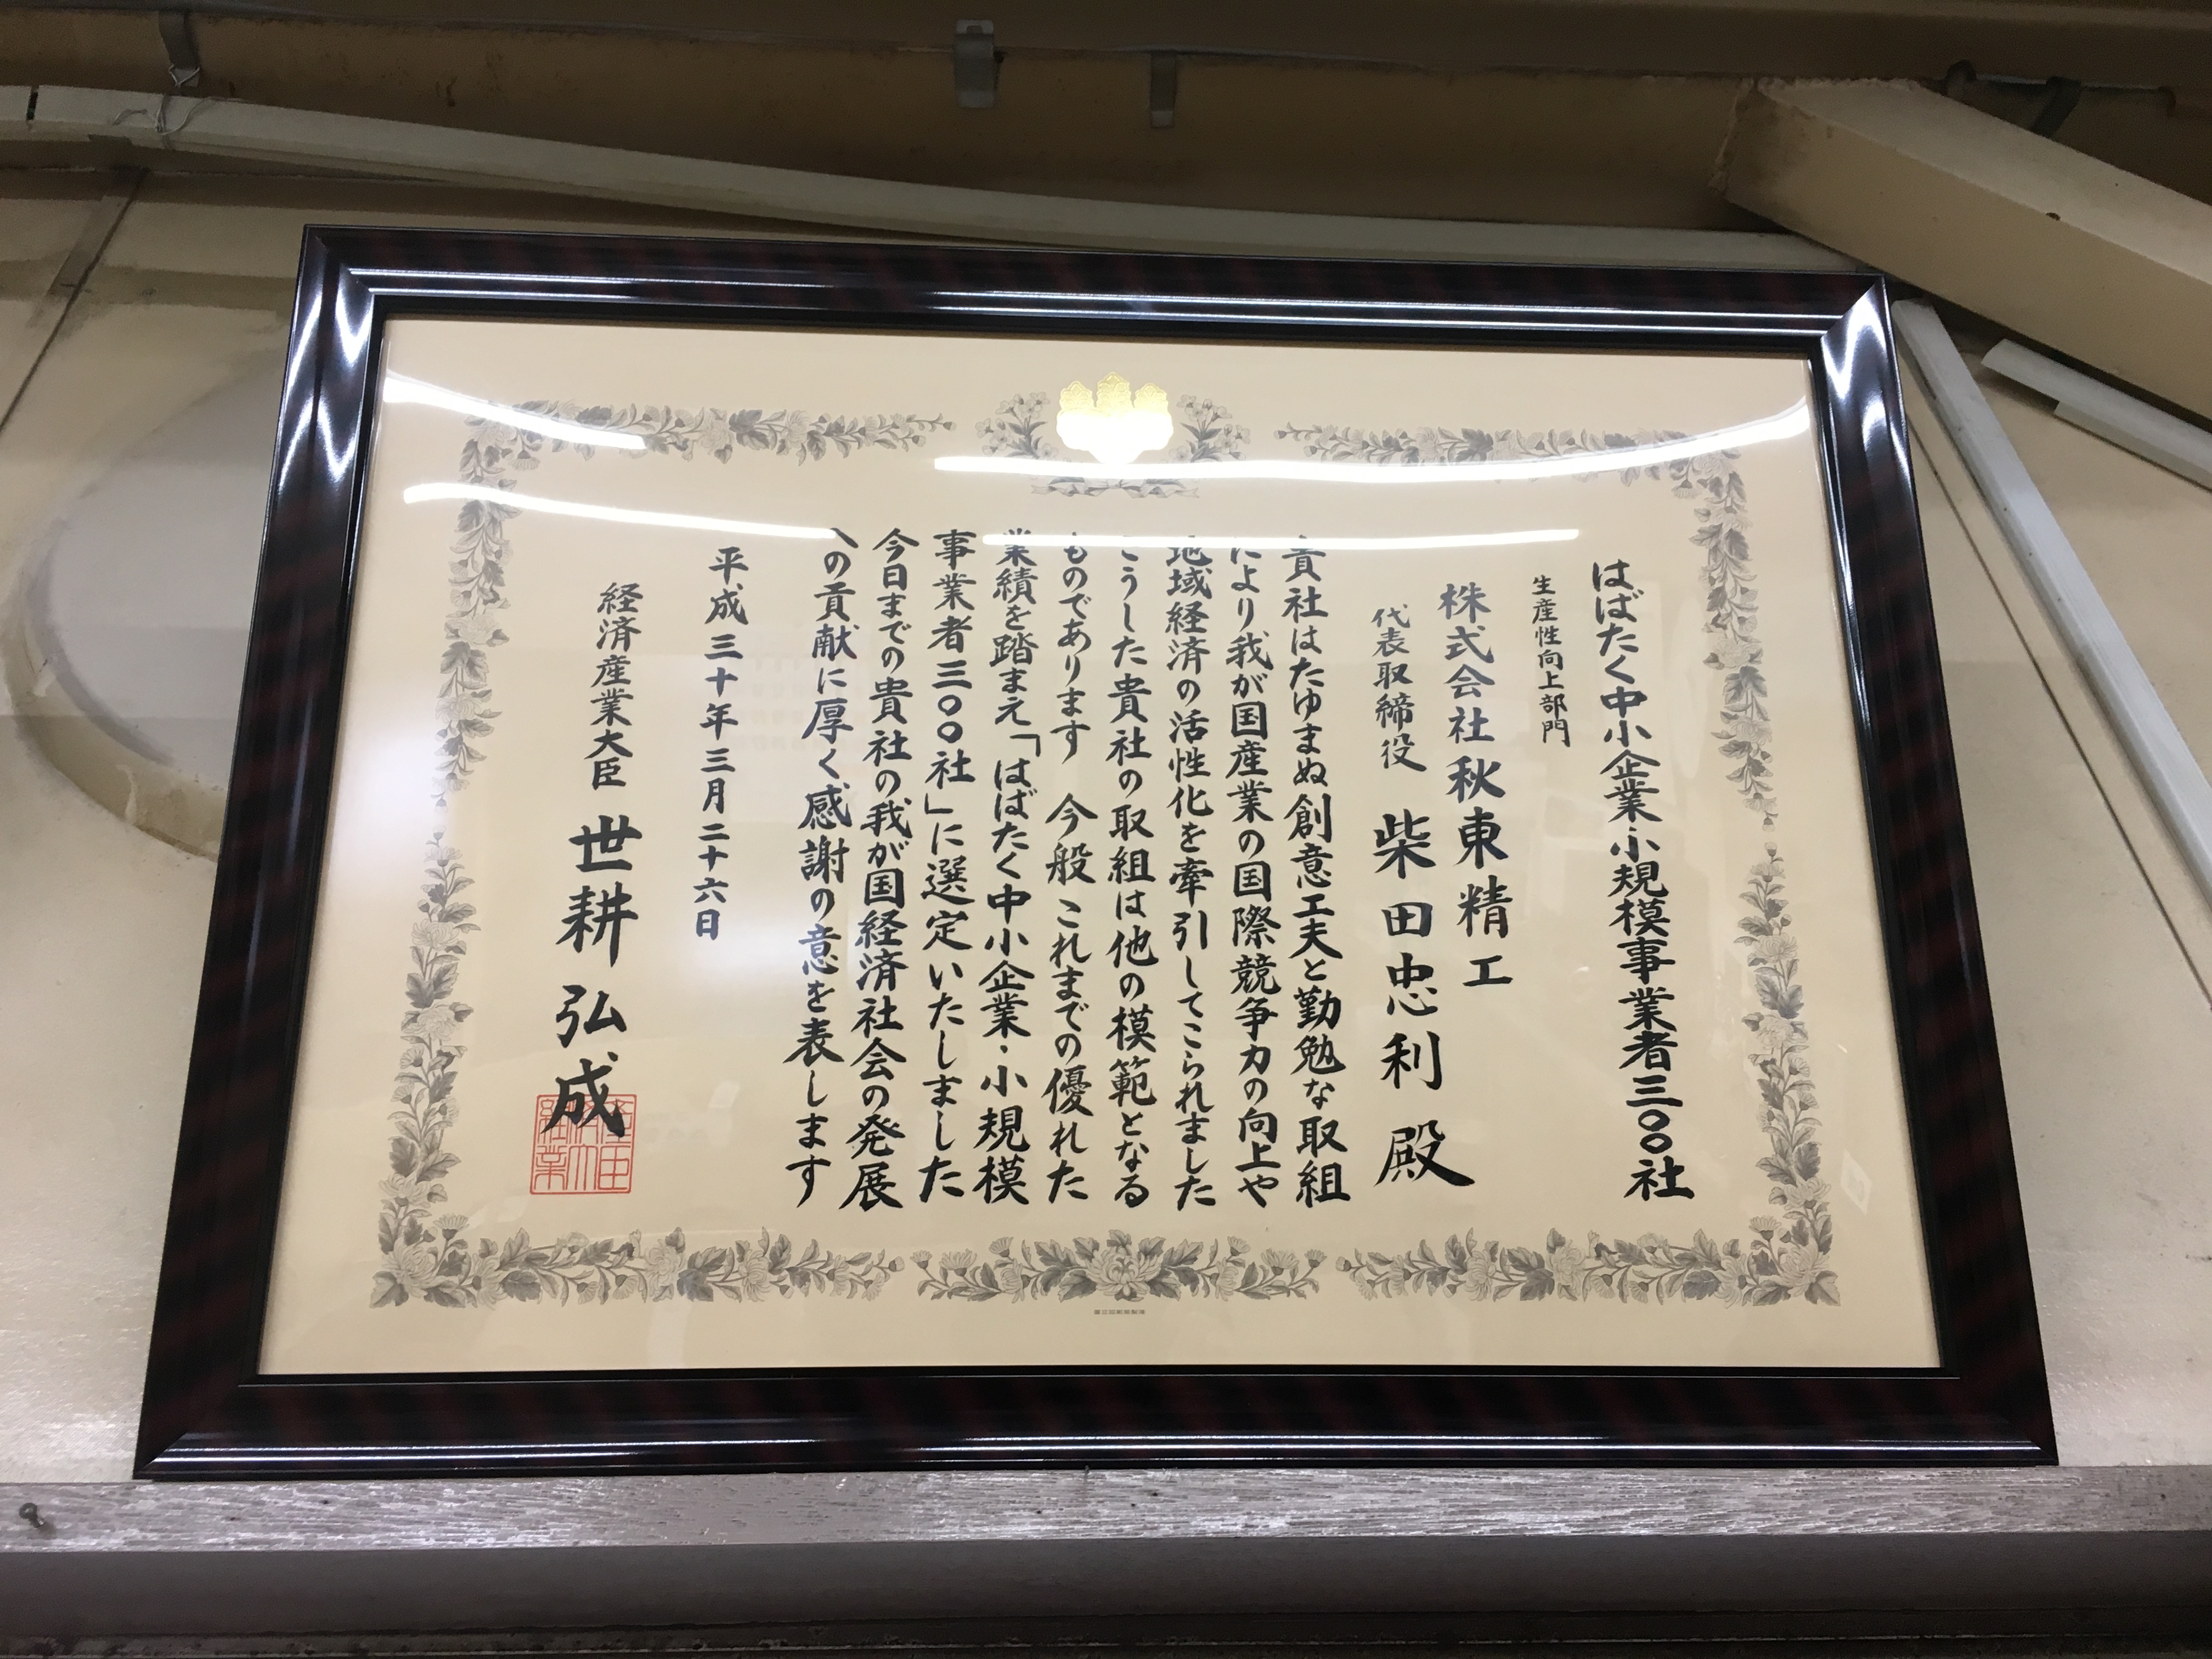 はばたく中小企業・小規模事業者三〇〇社
生産性向上部門
株式会社秋東精工
代表取締役 柴田忠利 殿
貴社はたゆまぬ創意工夫と勤勉な取組
により我が国産業の国際競争力の向上や
地域経済の活性化を牽引してこられました
こうした貴社の取組は他の模範となる
ものであります 今般これまでの優れた
業績を踏まえ「はばたく中小企業・小規模
事業者三〇〇社」に選定いたしました
今日までの貴社の我が国経済社会の発展
への貢献に厚く感謝の意を表します
平成三十年三月二十六日
経済産業大臣 世耕弘成